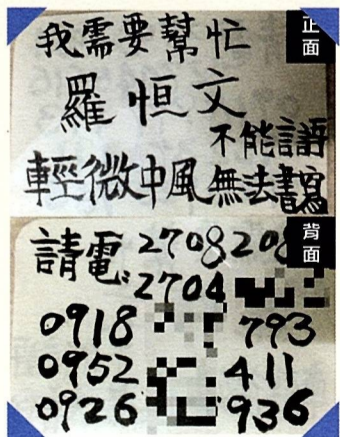 正面
我需要幫忙
羅恒文
不能語
輕微中風無法書寫
背面
請電 2708208
2704
0918 793
0952 411
0926 936